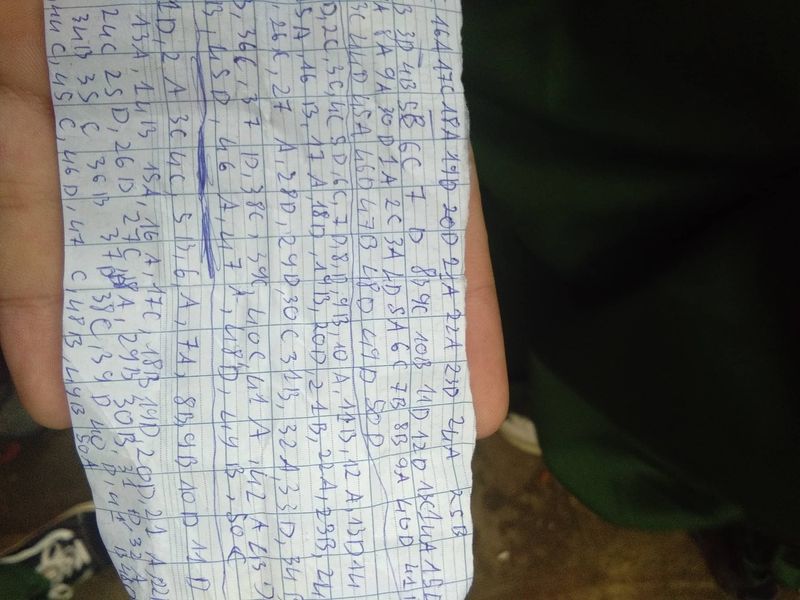 16A 17C 18A 19D 20D 21A 22A 23D 24A 25B
3D 4B 5B 6C 7 D 8B 9C 10B 11D 12D 13C 14A 15
8A 9A 30D 1A 2C 3A 4D 5A 6C 7B 8B 9A 40D 41
3C 44D 45A 46D 47B 48D 49D 50D
D, 2C, 3C, 4C 5D, 6C, 7 D, 8, D, 9B 10 A, 11B, 12A, 13D 14
5A 16B, 17A 18D, 19B, 20D 21B, 22A, 23B, 24
26C, 27 A, 28D, 29D, 30C 31B, 32A, 33D, 34
36C, 37 D, 38C, 39C 40C 41 A, 42 A
45D, 46 A, 47, 48D, 49B, 50C
1D, 2 A 3C 4C, 5 B, 6 A, 7A, 8B 9B 10D 11D
13A, 14B 15A, 16A, 17C, 18B 19D 20D 21 A
24C 25D, 26D 27C 28A, 29B 30B 31 D, 32A
34B 35 C 36B 37D 38C, 39 D 40 D
44C, 45 C, 46D, 47 C, 48B, 49B 50A